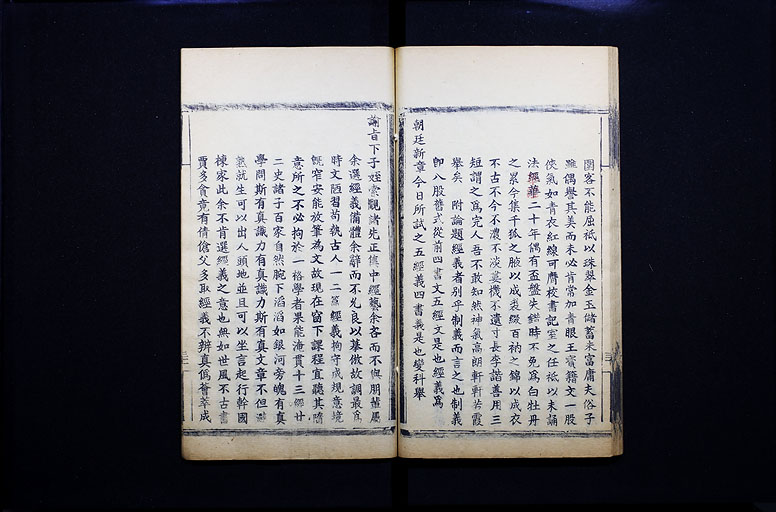 圍客不能屈祗以珠翠金玉儲蓄未富庸夫俗子
雖偶譽其美而未必肯常加青眼王實籍文一股
俠氣如青衣紅線可膺校書記室之任祗以未誦
法經華二十年偶有盃盤失錯時不免爲白牡丹
之累今集千狐之腋以成裘綴百衲之錦以成衣
不古不今不濃不淡裳機不遺寸長李諧善用三
短謂之爲完人吾不敢知然神氣高朗軒軒若霞
舉矣 附論題經義者別乎制義而言之也制義
卽八股舊式從前四書文五經文是也經義爲
朝廷新章今日所試之五經義四書義是也變科舉
諭旨下子姪業觀諸先正集中經藝余吝而不與朋輩屬
余選經義備體余辭而不允良以摹倣故調最爲
時文陋習苟執古人一二篇經義拘守成規意境
旣窄安能放筆為文故現在窗下課程宜聽其隨
意所之不必拘於一格學者果能淹貫十三經廿
二史諸子百家自然腕下滔滔如銀河旁魄有真
學問斯有真識力有真識力斯有真文章不但
就生可以出人頭地並且可以坐言起行幹國
棟家此余不肯選經義之意也無如世風不古書
賈多貪竟有倩傖父多取經義不辨真僞薈萃成